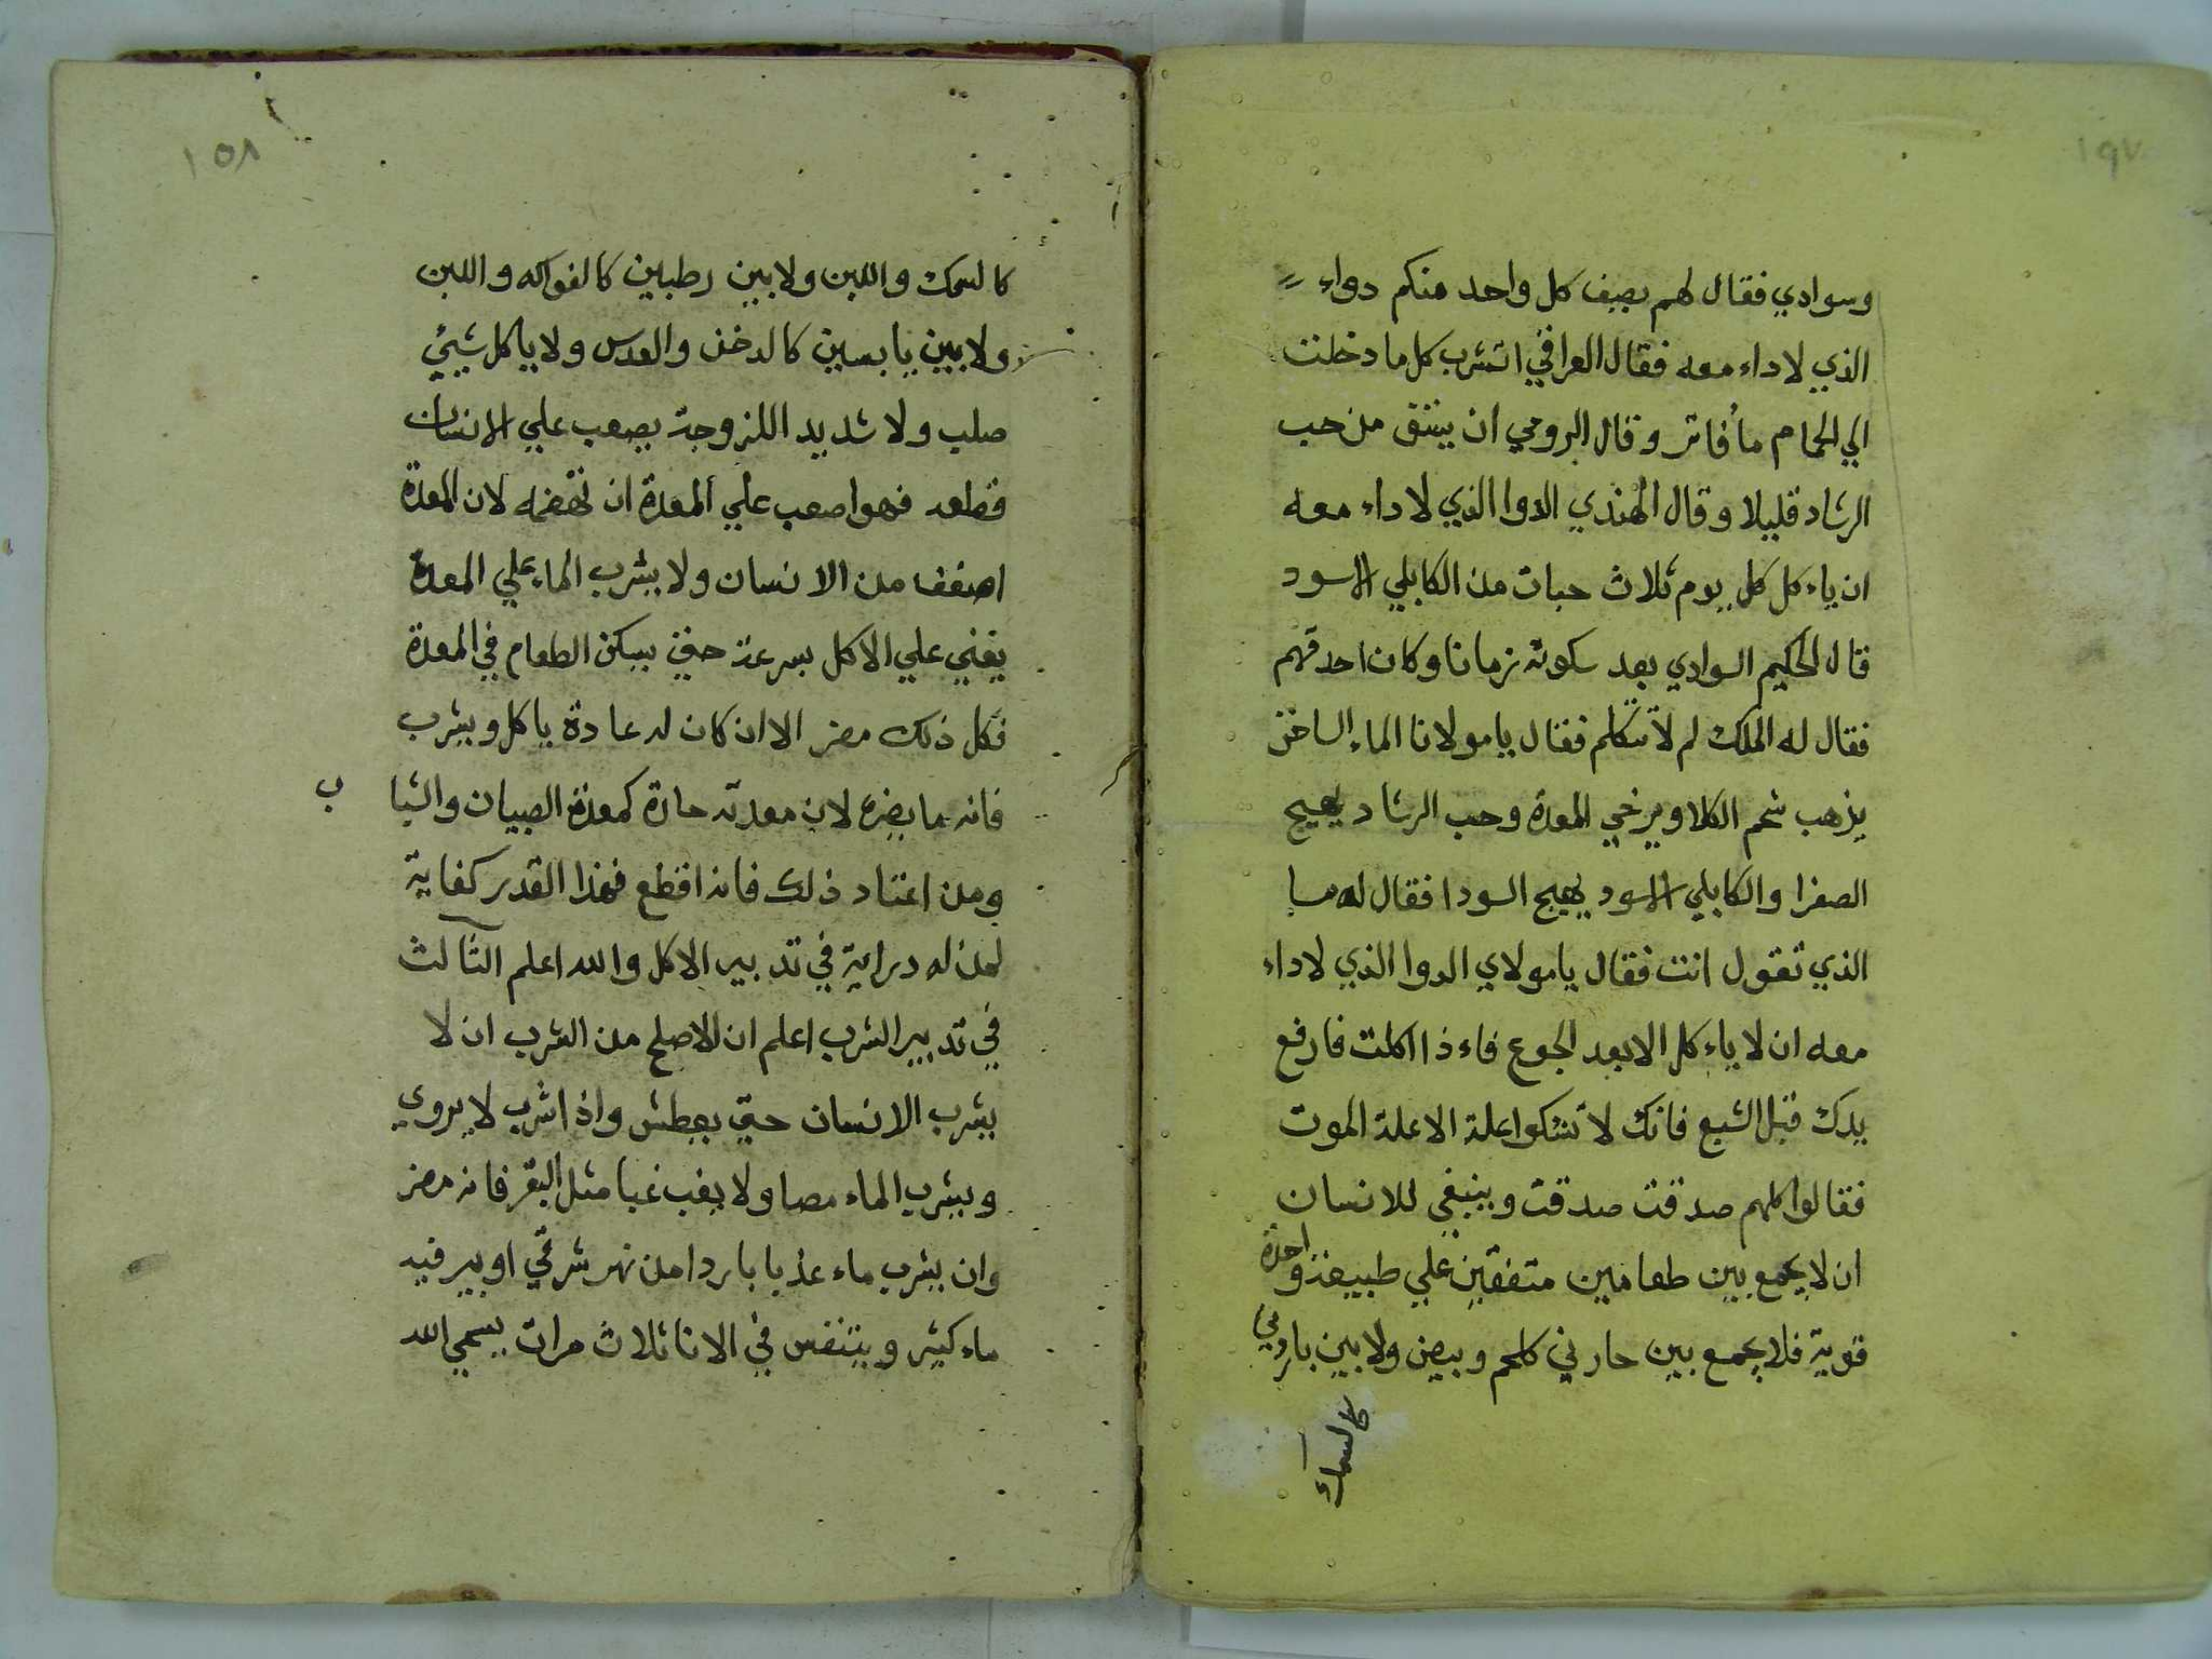 ١٥٧
وسوادي فقال لهم يصف كل واحد منكم دواء
الذي لا داء معه فقال العراقي اتشرب كل ما دخلت
الي الحمام ماء فاتر وقال الرومي ان يتنق من حب
الرشاد قليلا وقال الهندي الدوا الذي لا داء معه
ان ياءكل كل يوم ثلاث حبات من الكابلي الاسود
قال الحكيم السوادي بعد سكوته زمانا وكان احدقهم
فقال له الملك لم لا تتكلم فقال يا مولانا الماء الساخن
يذهب شحم الكلا ويرخي المعدة وحب الرشاد يهيج
الصفرا والكابلي الاسود يهيج السودا فقال له ما
الذي تقول انت فقال يا مولاي الدوا الذي لا داء
معه ان لا ياءكل الا بعد الجوع فاءذا اكلت فارفع
يدك قبل الشبع فانك لا تشكوا علة الا علة الموت
فقالوا كلهم صدقت صدقت وينبغي للانسان
ان لا يجمع بين طعامين متفقين علي طبيعة واحدة
قوية فلا يجمع بين حارني كلحم وبيض ولا بين باردين
كالسمك
١٥٨
كالسمك واللبن ولا بين رطبين كالفواكه واللبن
ولا بين يابسين كالدخن والعدس ولا ياكل شيئ
صلب ولا شديد اللزوجة يصعب علي الانسان
قطعه فهو اصعب علي المعدة ان تهضمه لان المعدة
اضعف من الانسان ولا يشرب الماء علي المعدة
يعني علي الاكل بسرعة حتي يسكن الطعام في المعدة
فكل ذلك مضر الا ان كان له عادة ياكل ويشرب
فانه ما يضره لان معدته حارة كمعدة الصبيان والشباب
ومن اعتاد ذلك فانه اقطع فهذا القدر كفاية
لمن له دراية في تدبير الاكل والله اعلم الثالث
في تدبير الشرب اعلم ان الاصلح من الشرب ان لا
يشرب الانسان حتي يعطش واذا شرب لا يروي
ويشرب الماء مصا ولا يغب غبا مثل البقر فانه مضر
وان يشرب ماء عذبا باردا من نهر شرقي او بير فيه
ماء كثير ويتنفس في الانا ثلاث مرات يسمي الله